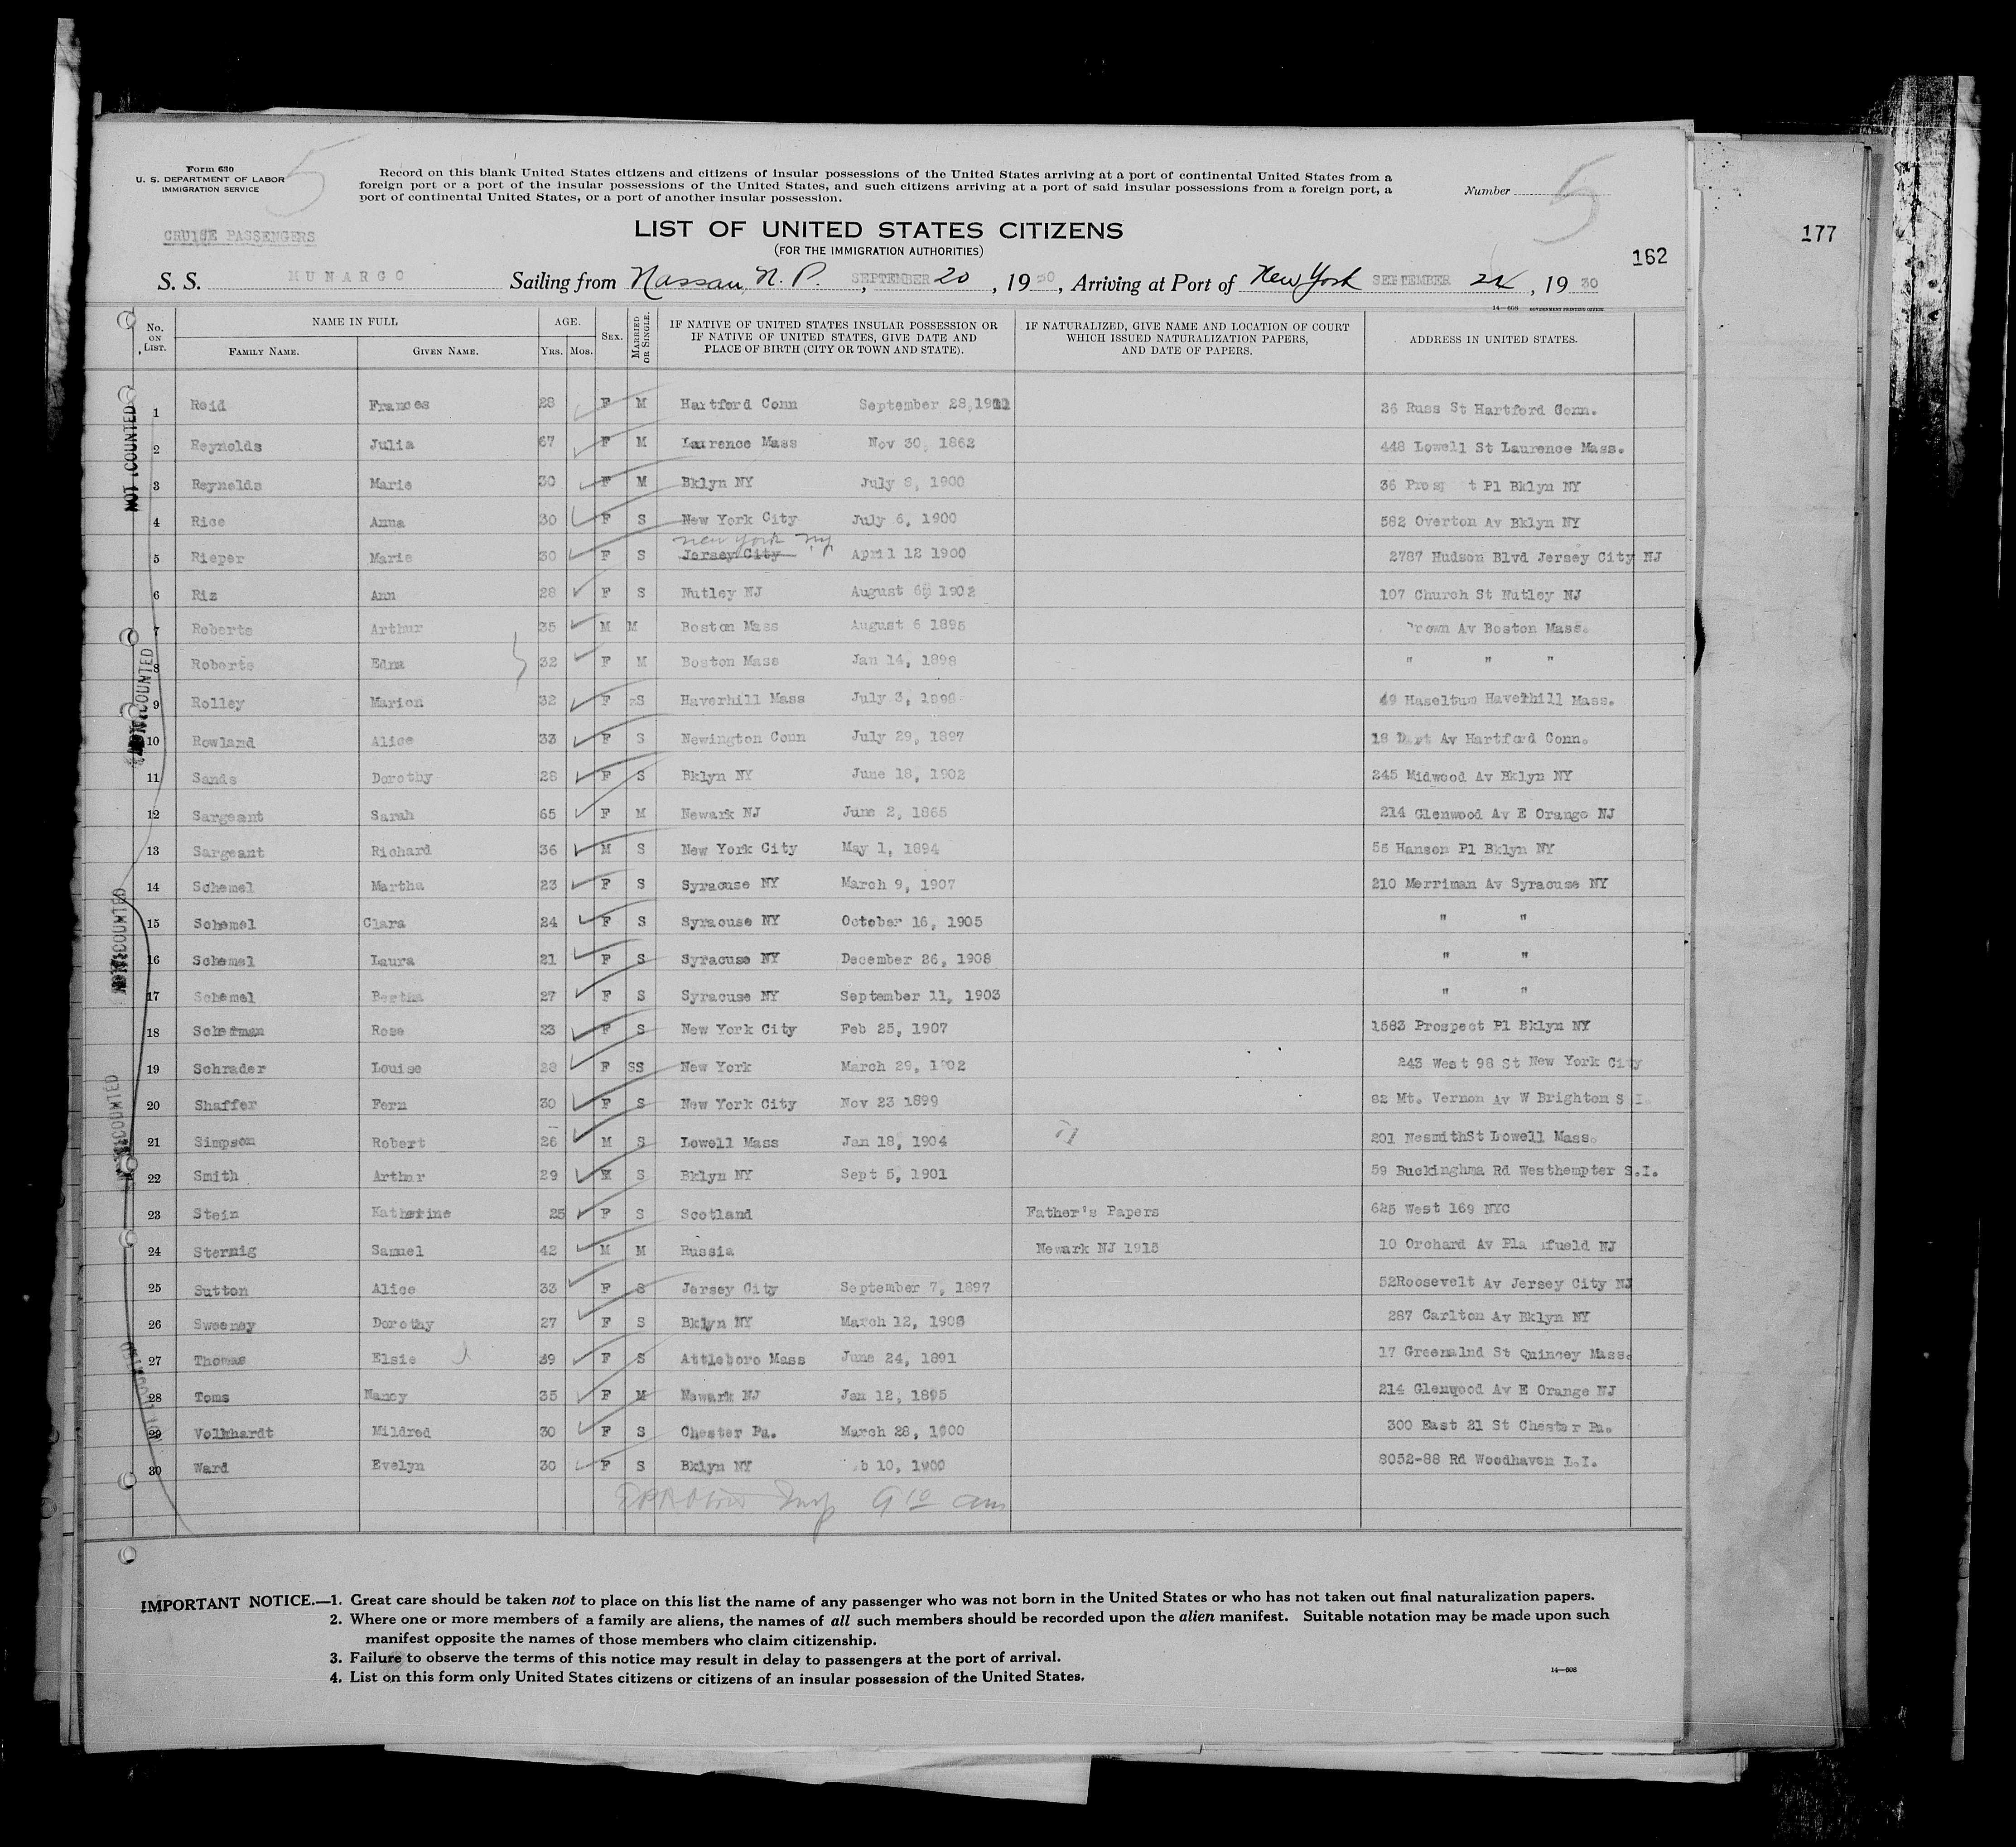 Form 630
U. S. DEPARTMENT OF LABOR
IMMIGRATION SERVICE
5
Record on this blank United States citizens and citizens of insular possessions of the United States arriving at a port of continental United States from a
foreign port or a port of the insular possessions of the United States, and such citizens arriving at a port of said insular possessions from a foreign port, a
port of continental United States, or a port of another insular possession.
Number
5
177
CRUISE PASSENGERS
LIST OF UNITED STATES CITIZENS
(FOR THE IMMIGRATION AUTHORITIES)
162
S. S. MUNARGO Sailing from Nassau, N. P. , SEPTEMBER 20 , 19 30 , Arriving at Port of New York SEPTEMBER 24 , 19 30
14—608 GOVERNMENT PRINTING OFFICE
No. ON LIST. NAME IN FULL FAMILY NAME. GIVEN NAME. AGE. YRS. MOS. SEX. MARRIED OR SINGLE. IF NATIVE OF UNITED STATES INSULAR POSSESSION OR IF NATIVE OF UNITED STATES, GIVE DATE AND PLACE OF BIRTH (CITY OR TOWN AND STATE). IF NATURALIZED, GIVE NAME AND LOCATION OF COURT WHICH ISSUED NATURALIZATION PAPERS, AND DATE OF PAPERS. ADDRESS IN UNITED STATES.
NOT COUNTED
1 Reid Frances 28 F M Hartford Conn September 28, 26 Russ St Hartford Conn.
2 Reynolds Julia 67 F M Laurence Mass Nov 30, 1862 448 Lowell St Laurence Mass.
3 Reynolds Marie 30 F M Bklyn NY July 8, 1900 36 Pl Bklyn NY
4 Rice Anna 30 F S New York City July 6, 1900 582 Overton Av Bklyn NY
New York NY
5 Rieper Marie 30 F S Jersey City April 12 1900 2787 Hudson Blvd Jersey City NJ
6 Riz Ann 28 F S Nutley NJ August 6 1902 107 Church St Nutley NJ
7 Roberts Arthur 35 M M Boston Mass August 6 1895 Av Boston Mass.
8 Roberts Edna 32 F M Boston Mass Jan 14, 1898 " " "
9 Rolley Marion 32 F S Haverhill Mass July 3, 1898 49 Haseltum Haverhill Mass.
10 Rowland Alice 33 F S Newington Conn July 29, 1897 18 Av Hartford Conn.
11 Sands Dorothy 28 F S Bklyn NY June 18, 1902 245 Midwood Av Bklyn NY
12 Sargeant Sarah 65 F M Newark NJ June 2, 1865 214 Glenwood Av E Orange NJ
13 Sargeant Richard 36 M S New York City May 1, 1894 55 Hanson Pl Bklyn NY
14 Schemel Martha 23 F S Syracuse NY March 9, 1907 210 Merriman Av Syracuse NY
15 Schemel Clara 24 F S Syracuse NY October 16, 1905 " "
16 Schemel Laura 21 F S Syracuse NY December 26, 1908 " "
17 Schemel Bertha 27 F S Syracuse NY September 11, 1903 " "
18 Scherman Rose 23 F S New York City Feb 25, 1907 1583 Prospect Pl Bklyn NY
19 Schrader Louise 28 F SS New York March 29, 1902 243 West 98 St New York City
20 Shaffer Fern 30 F S New York City Nov 23 1899 82 Mt. Vernon Av W Brighton S I.
21 Simpson Robert 26 M S Lowell Mass Jan 18, 1904 201 NesmithSt Lowell Mass.
22 Smith Arthur 29 M S Bklyn NY Sept 5, 1901 59 Buckinghma Rd Westhempter S.I.
23 Stein Katherine 25 F S Scotland Father's Papers 625 West 169 NYC
24 Sternig Samuel 42 M M Russia Newark NJ 1915 10 Orchard Av NJ
25 Sutton Alice 33 F S Jersey City September 7, 1897 52Roosevelt Av Jersey City NJ
26 Sweeney Dorothy 27 F S Bklyn NY March 12, 1903 287 Carlton Av Bklyn NY
27 Thomas Elsie 39 F S Attleboro Mass June 24, 1891 17 Greenalnd St Quincey Mass.
28 Toms Nancy 35 F M Newark NJ Jan 12, 1895 214 Glenwood Av E Orange NJ
29 Volkhardt Mildred 30 F S Chester Pa. March 28, 1900 300 East 21 St Chester Pa.
30 Ward Evelyn 30 F S Bklyn NY 10, 1900 8052-88 Rd Woodhaven L.I.
Insp 9 10 am
IMPORTANT NOTICE.—1. Great care should be taken not to place on this list the name of any passenger who was not born in the United States or who has not taken out final naturalization papers.
2. Where one or more members of a family are aliens, the names of all such members should be recorded upon the alien manifest. Suitable notation may be made upon such
manifest opposite the names of those members who claim citizenship.
3. Failure to observe the terms of this notice may result in delay to passengers at the port of arrival.
4. List on this form only United States citizens or citizens of an insular possession of the United States.
14—608